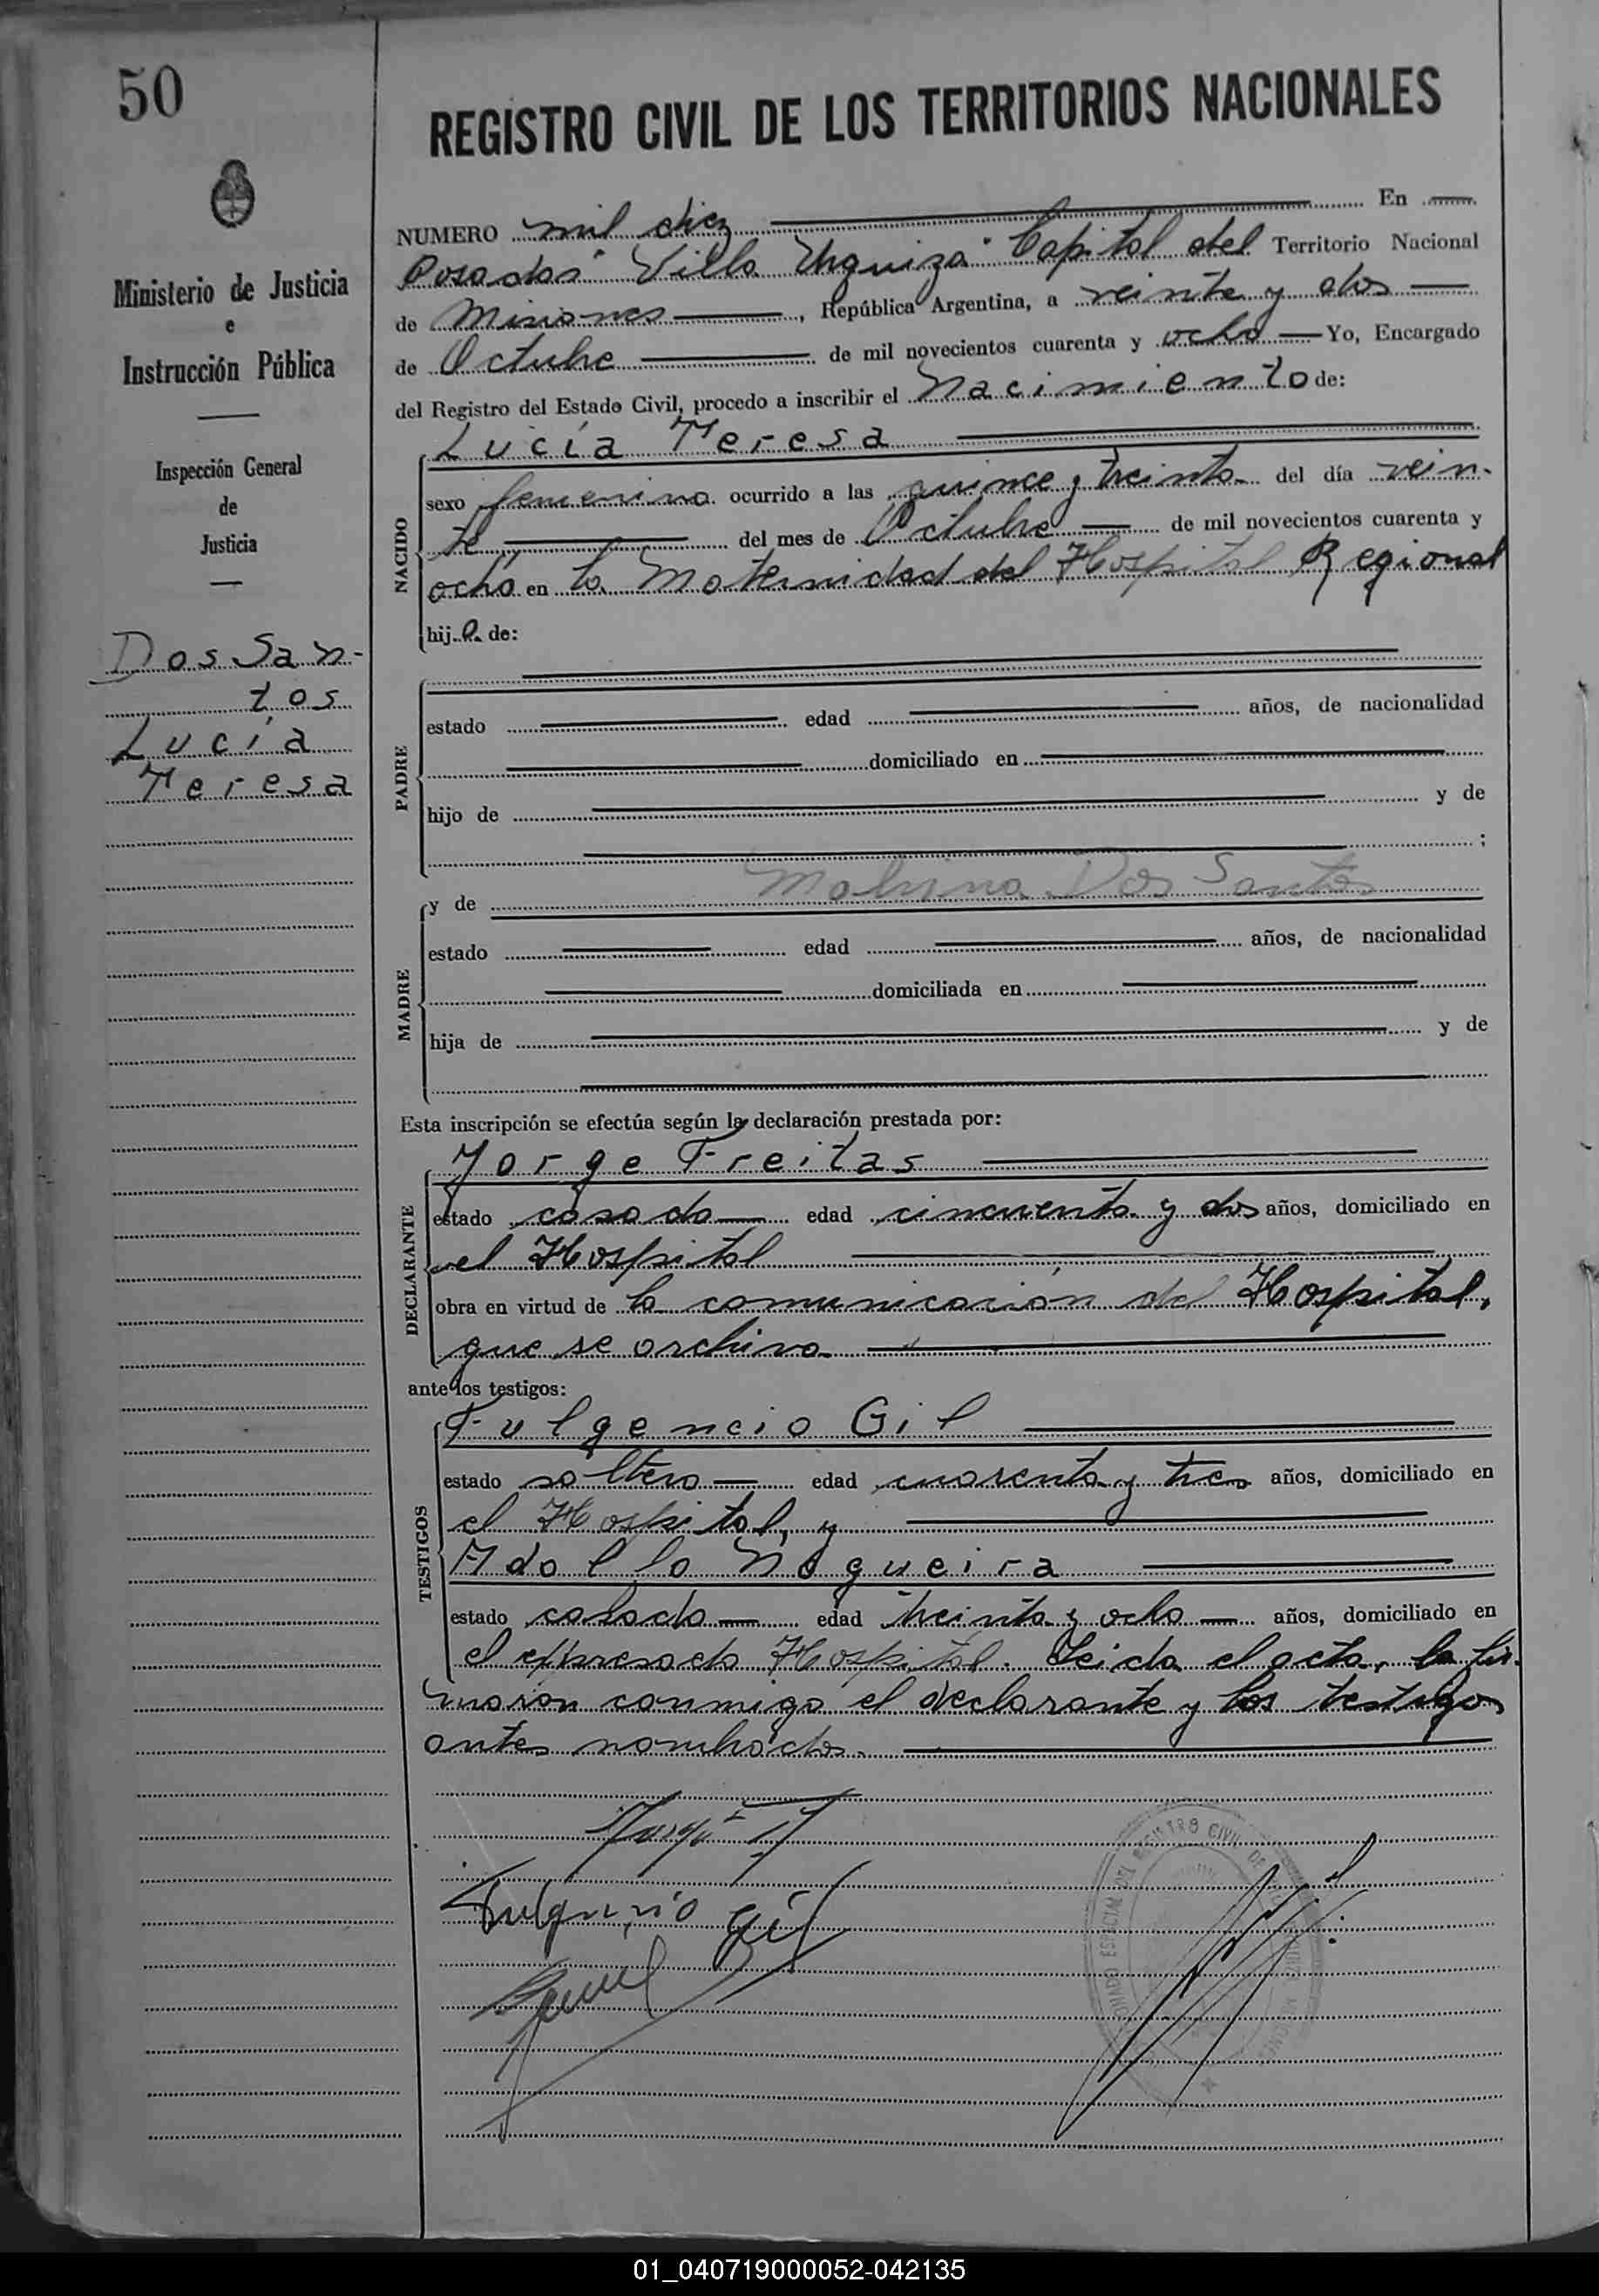 50
REGISTRO CIVIL DE LOS TERRITORIOS NACIONALES
Ministerio de Justicia
e
Instrucción Pública
Inspección General
de
Justicia
Dos San-
tos
Lucía
Teresa
NUMERO mil diez En
Posadas "Villa Urquiza" Capital del Territorio Nacional
de Misiones, República Argentina, a veinte y dos
de Octubre de mil novecientos cuarenta y ocho Yo, Encargado
del Registro del Estado Civil, procedo a inscribir el Nacimiento de:
NACIDO
Lucía Teresa
sexo femenino ocurrido a las quince y treinta del día vein-
te del mes de Octubre de mil novecientos cuarenta y
ocho en la Maternidad del Hospital Regional
hija de:
PADRE
estado edad años, de nacionalidad
domiciliado en
hijo de y de
;
MADRE
y de Malvina Dos Santos
estado edad años, de nacionalidad
domiciliada en
hija de y de
Esta inscripción se efectúa según la declaración prestada por:
DECLARANTE
Jorge Freitas
estado casado edad cincuenta y dos años, domiciliado en
el Hospital
obra en virtud de la comunicación del Hospital,
que se archiva
ante los testigos:
TESTIGOS
Fulgencio Gil
estado soltero edad cuarenta y tres años, domiciliado en
el Hospital, y
Adolfo Nogueira
estado casado edad treinta y ocho años, domiciliado en
el expresado Hospital. Leida el acta, la fir-
maron conmigo el declarante y los testigos
antes nombrados.
Fulgencio Gil
ESPECIAL DEL REGISTRO CIVIL DE
01_040719000052-042135